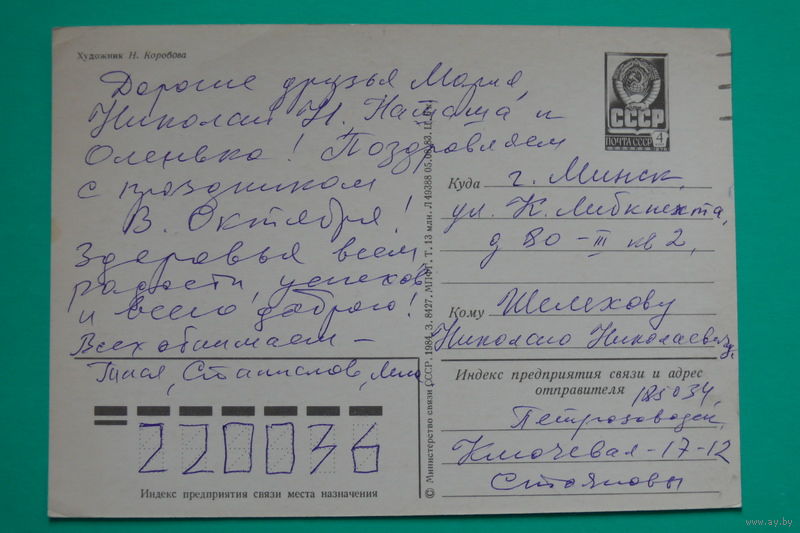 Художник Н. Коробова
Дорогие друзья Мария,
Николай Н. Наташа и
Оленька! Поздравляем
с праздником
В. Октября!
Здоровья всем,
радости, успехов
и всего доброго!
Всех обнимаем –
Станислав,
220036
Индекс предприятия связи места назначения
© Министерство связи СССР. 1984. З. 8427. МПФГ. Т. 13 млн. Л 49388 05.09.83. Ц. 4 к.
СССР
ПОЧТА СССР 4
Куда г. Минск,
ул. К. Либкнехта,
д 80 – III кв 2,
Кому Шелехову
Николаю Николаевичу
Индекс предприятия связи и адрес
отправителя 185034,
Петрозаводск,
Ключевая – 17-12
Стояновы
www.ay.by